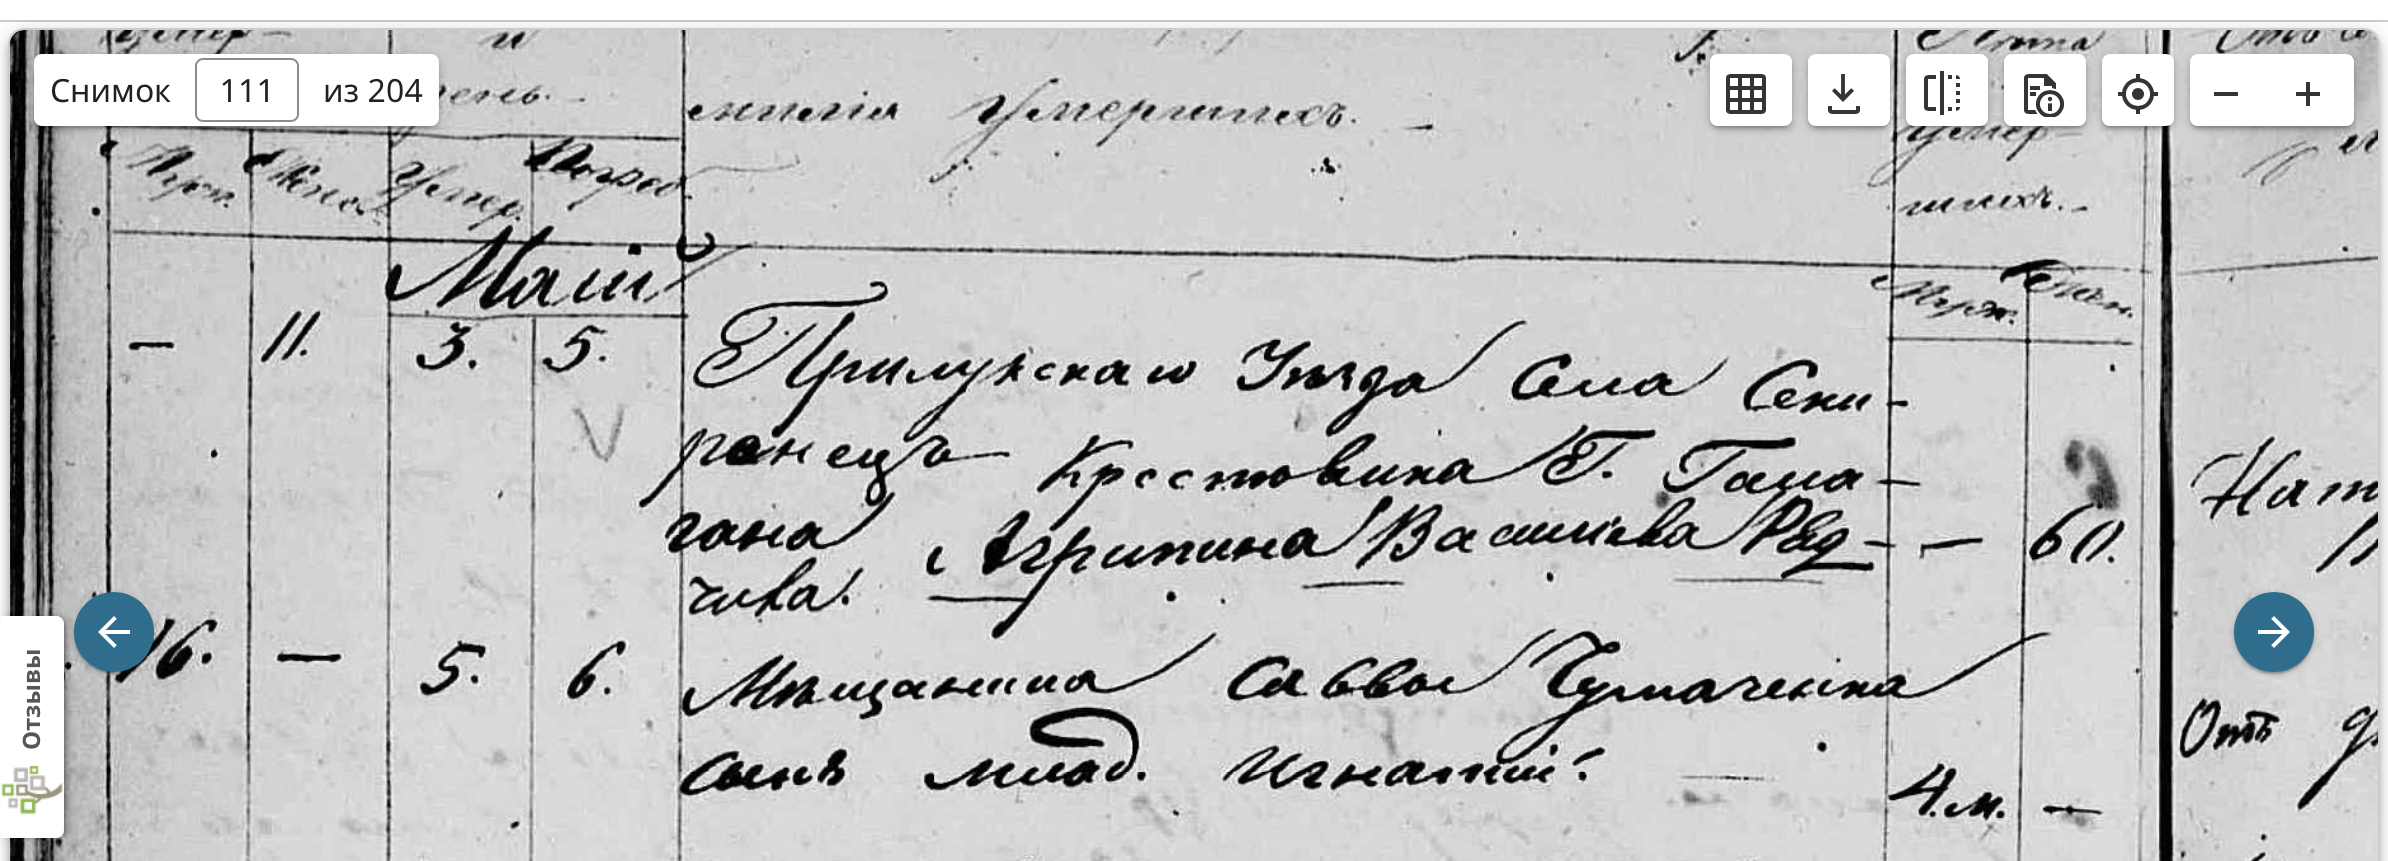 Снимок 111 из 204
день.
милія Умершихъ.
Лѣта
умер-
шихъ.
Муж. Жено. Умер. Погреб.
Май
Муж. Жен.
— 11. 3. 5. Прилукскаго Уѣзда Села Секи-
ренецъ Крестовика Г. Гала-
гана Агрипина Василиева Ряд- — 60.
чикова.
16. — 5. 6. Мѣщанина Саввы Чумаченка
сынъ млад. Игнатій. 4.м. —
Отъ
Отзывы